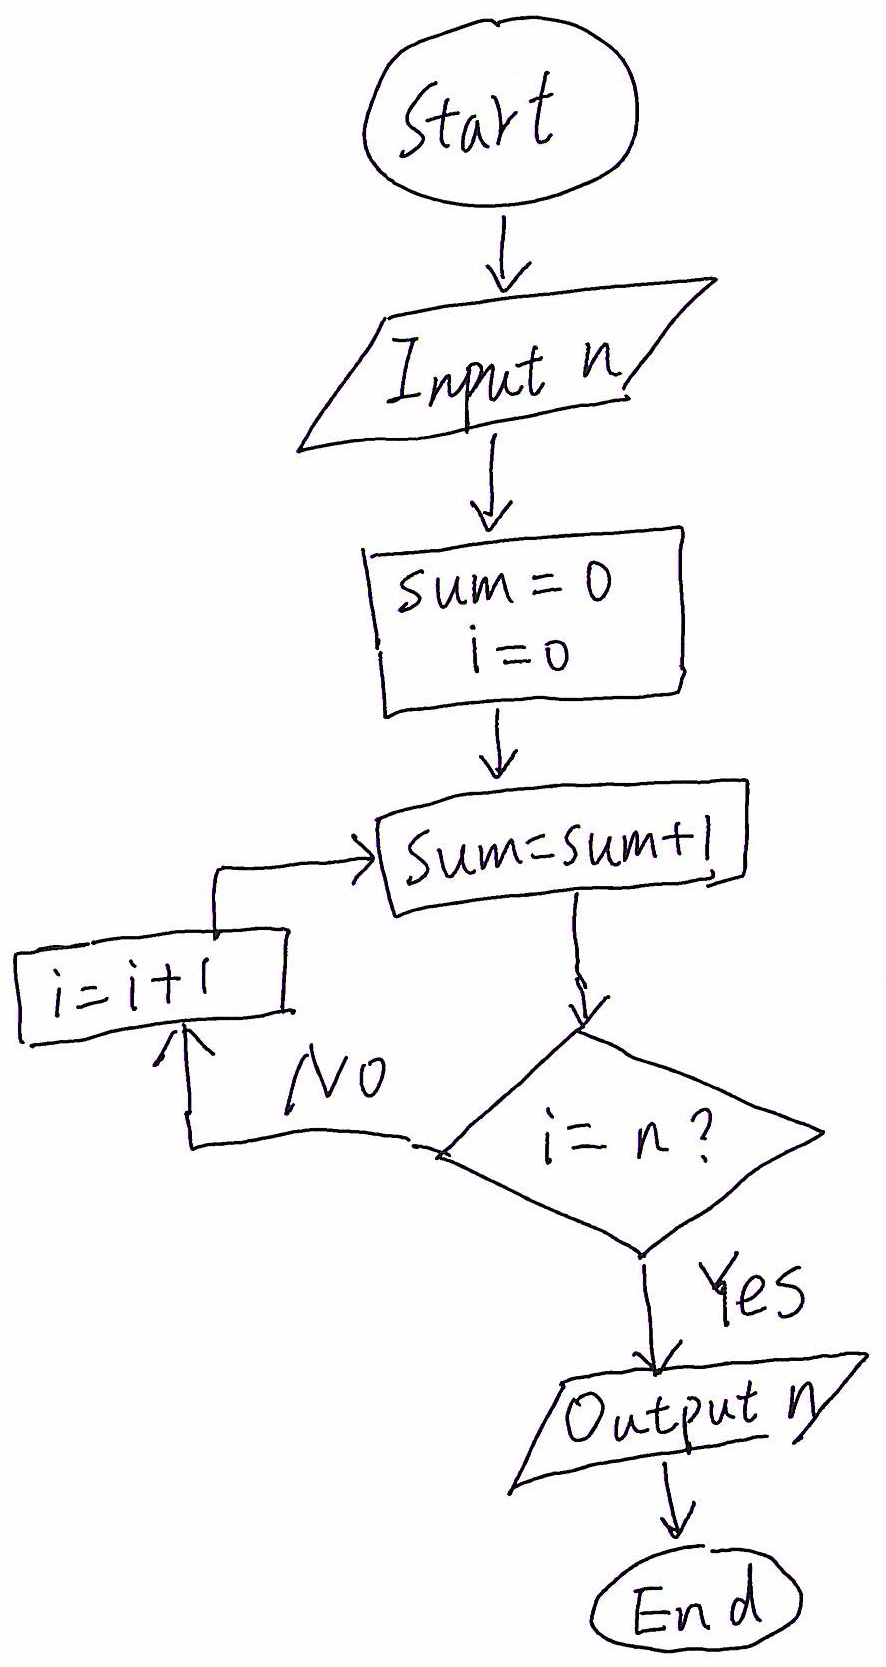 Start
Input n
sum = 0
i = 0
sum=sum+1
i=i+1
No
i= n?
Yes
Output n
End